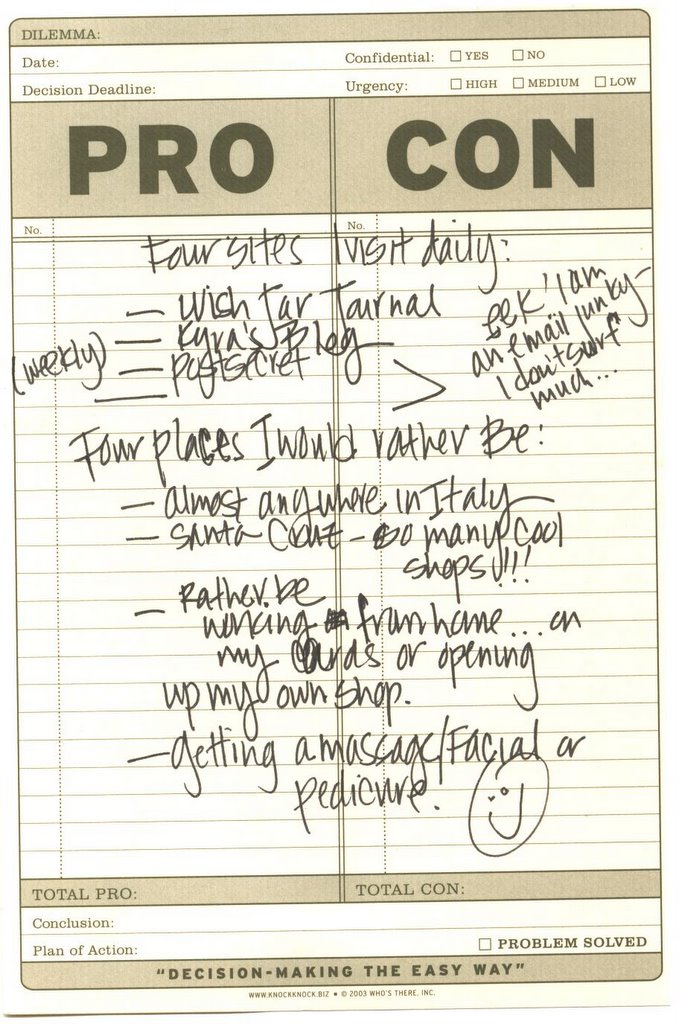 DILEMMA:
Date:
Confidential: YES NO
Decision Deadline:
Urgency: HIGH MEDIUM LOW
PRO CON
No. No.
Four sites I visit daily:
— Wish Jar Journal
— Kyra's Blog
(weekly) — postsecret
—
eek! I am
an email junky-
I don't surf
much...
Four places I would rather Be:
— almost anywhere in Italy
— Santa Cruz - so many cool
shops!!!!
— Rather be
working from home... on
my cards or opening
up my own shop.
— getting a massage/Facial or
pedicure!
TOTAL PRO: TOTAL CON:
Conclusion:
Plan of Action:
PROBLEM SOLVED
"DECISION-MAKING THE EASY WAY"
WWW.KNOCKKNOCK.BIZ • © 2003 WHO'S THERE, INC.